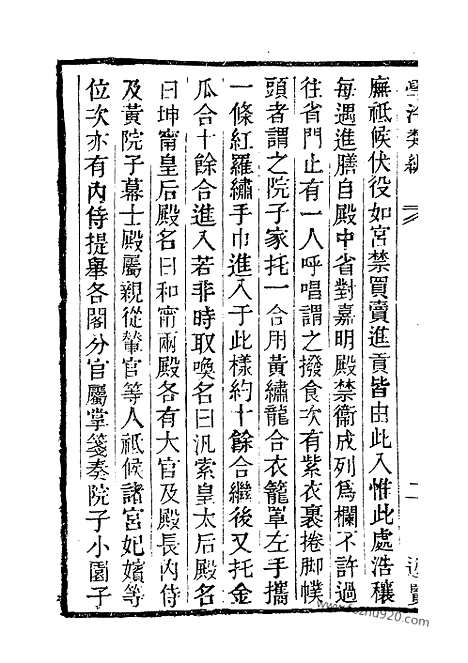 學海類編
二
廡祗候伏役如宮禁買賣進貢皆由此入惟此處浩穰
每遇進膳自殿中省對嘉明殿禁衞成列爲欄不許過
往省門止有一人呼唱謂之撥食次有紫衣裹捲脚幞
頭者謂之院子家托一合用黃繡龍合衣籠罩左手攜
一條紅羅繡手巾進入于此樣約十餘合繼後又托金
瓜合十餘合進入若非時取喚名曰汎索皇太后殿名
曰坤甯皇后殿名曰和甯兩殿各有大官及殿長內侍
及黃院子幕士殿屬親從輦官等人祗候諸宮妃嬪等
位次亦有內侍提舉各閣分官屬掌箋奏院子小園子